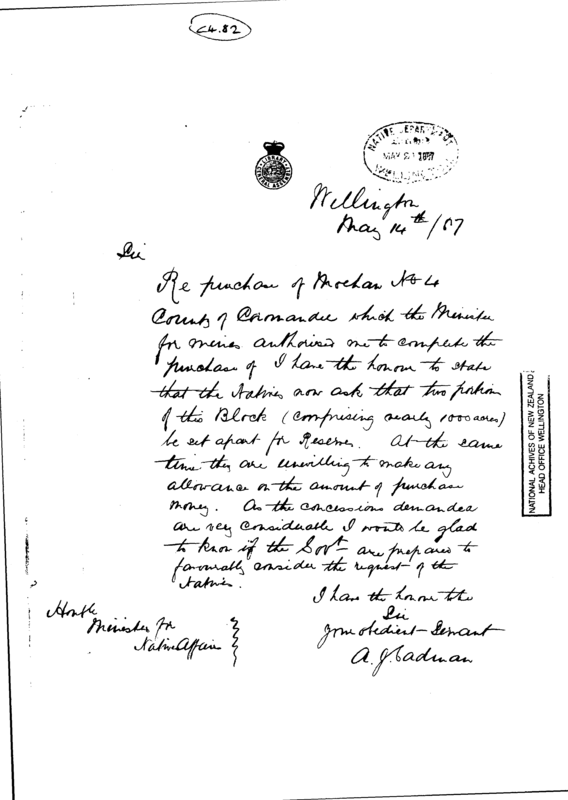 C4.82
NATIVE DEPARTMENT
MAY 1887
WELLINGTON
LIBRARY
GENERAL ASSEMBLY
Wellington
May 14th /87
Sir
Re purchase of Moehau No 4
County of Coromandel which the Minister
for mines authorised me to complete the
purchase of I have the honour to state
that the Natives now ask that two portions
of this Block (comprising nearly 1000 acres)
be set apart for Reserves. At the same
time they are unwilling to make any
allowance on the amount of purchase
money. As the concessions demanded
are very considerable I would be glad
to know if the Govt are prepared to
favourably consider the request of the
Natives.
I have the honour to be
Sir
your obedient Servant
A. J. Cadman
Honble
Minister for
Native Affairs
NATIONAL ACHIVES OF NEW ZEALAND
HEAD OFFICE WELLINGTON